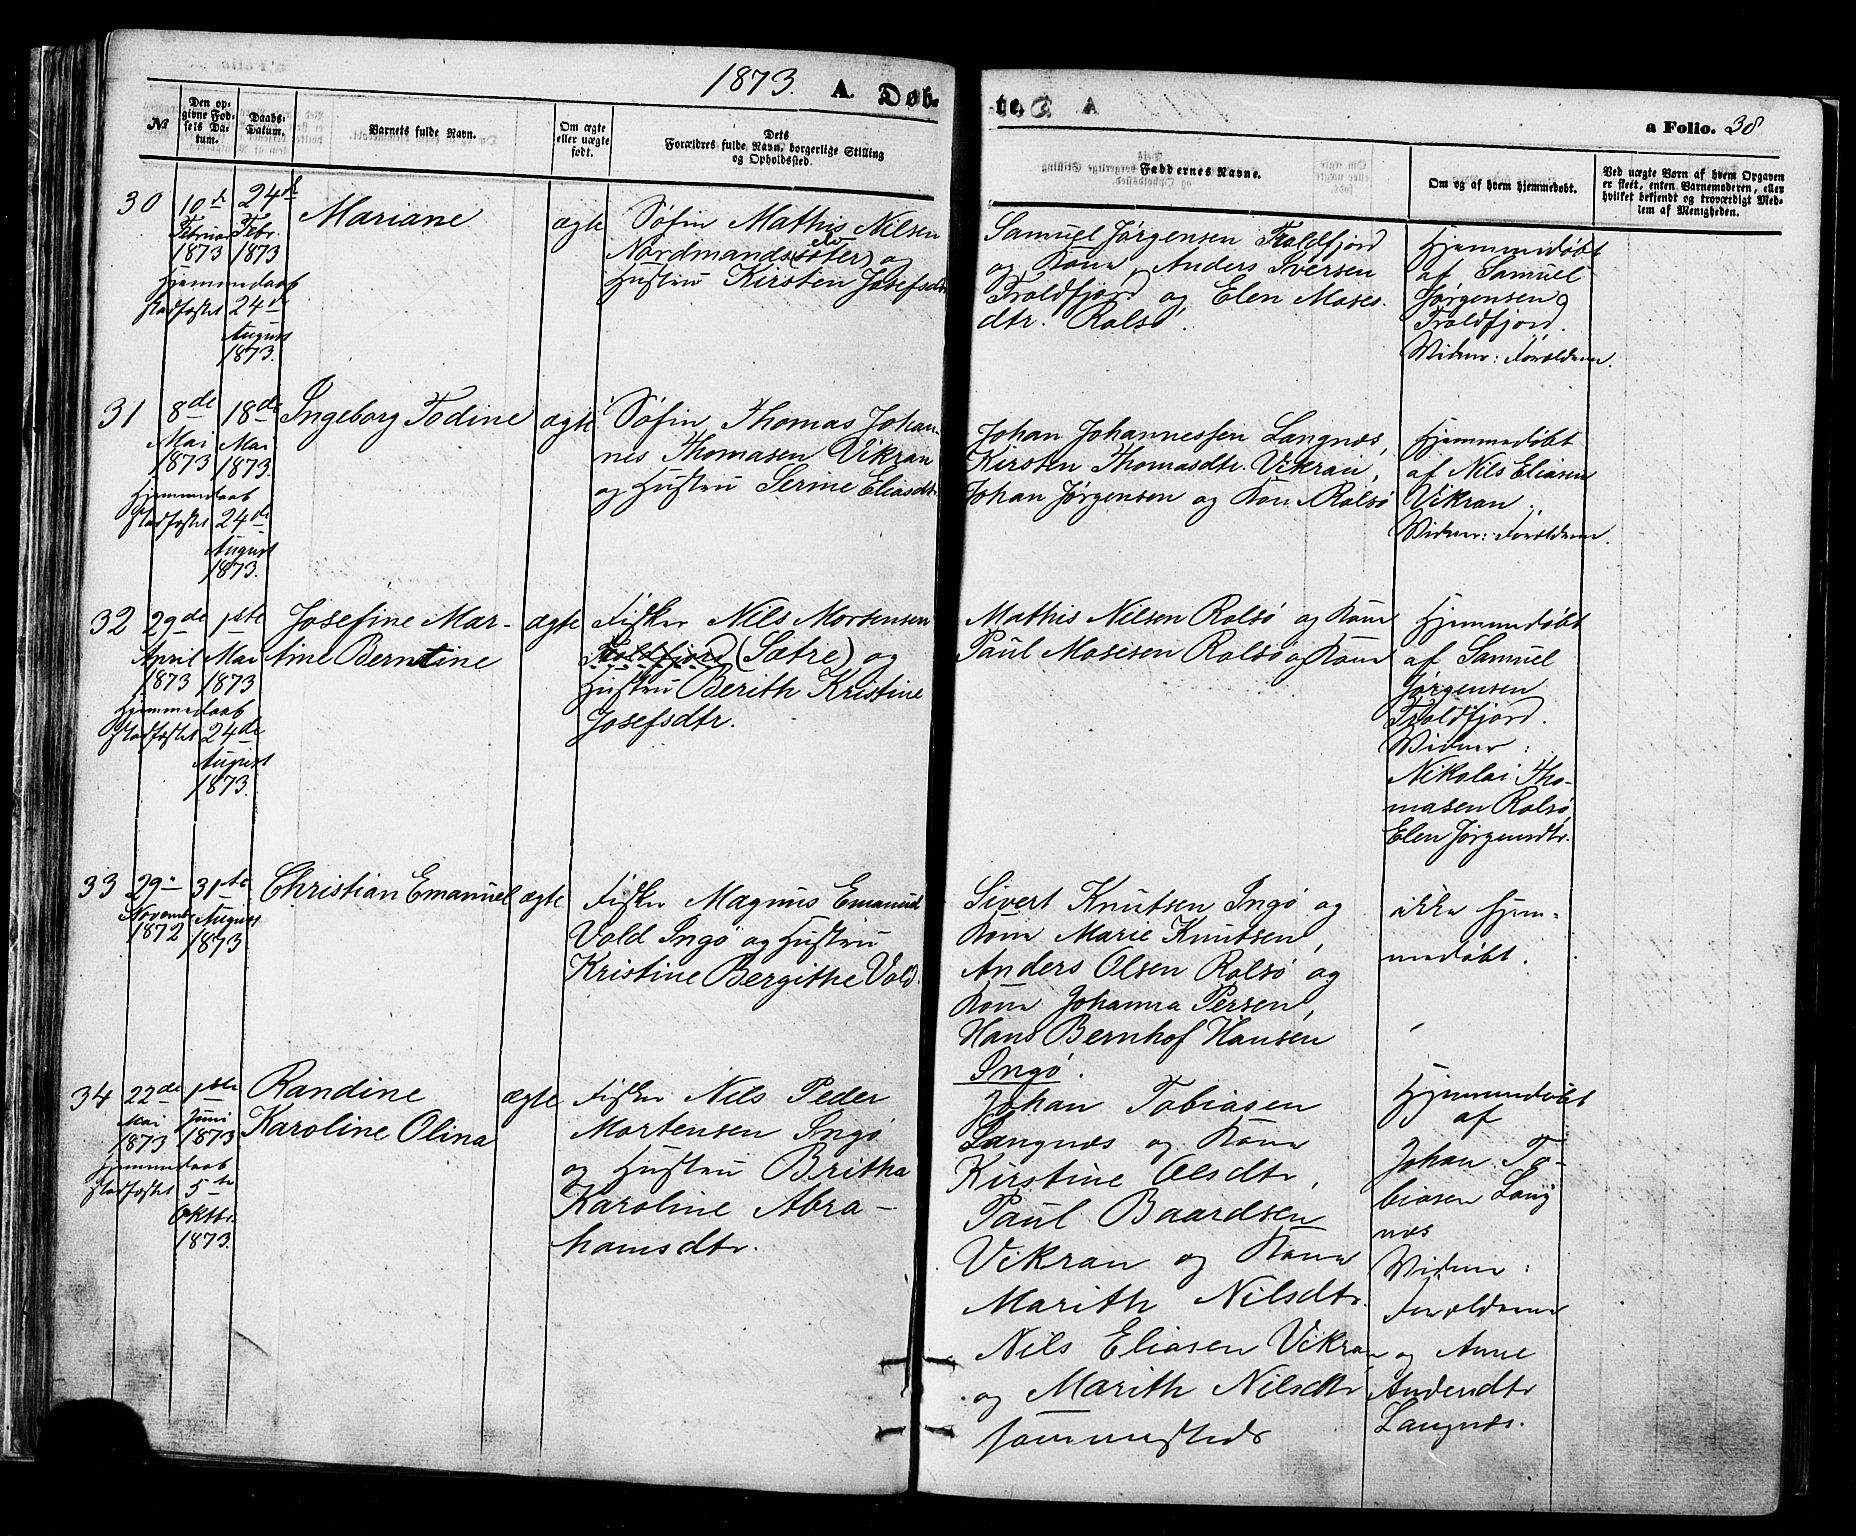 1873. A. Døb-
te. a Folio. 38
№
Den op-
givne Fød-
sels Da-
tum.
Daabs-
Datum.
Barnets fulde Navn.
Om ægte
eller uægte
født.
Dets
Forældres fulde Navn, borgerlige Stilling
og Opholdssted.
Faddernes Navne.
Om og af hvem hjemmedøbt.
Ved uægte Børn af hvem Opgaven
er skeet, enten Barnemoderen, eller
hvilket bekjendt og troværdigt Med-
lem af Menigheden.
30
10de
Februar
1873
Hjemmedaab
stadfæstet
24de
Febr.
1873
24de
August
1873.
Mariane
ægte
Søfin Mathis Nilsen
Nordmands(søter) og
elv
Hustru Kirsten Josefsdtr
Samuel Jørgensen Troldfjord
og Kone, Anders Iversen
Troldfjord og Elen Moses-
dtr. Rolsø.
Hjemmedøbt
af Samuel
Jørgensen
Troldfjord.
Vidner: Forældrene.
31
8de
Mai
1873
Hjemmedaab
stadfæstet
18de
Mai
1873.
24de
August
1873.
Ingeborg Todine
ægte
Søfin Thomas Johan-
nes Thomasen Vikran
og Hustru Serine Eliasdtr.
Johan Johannessen Langnæs,
Kirsten Thomasdtr. Vikran,
Johan Jørgensen og Kone Rolsø
Hjemmedøbt
af Nils Eliasen
Vikran.
Vidner: Forældrene.
32
29de
April
1873
Hjemmedaab
stadfæstet
1ste
Mai
1873
24de
August
1873.
Josefine Mar-
tine Berntine
ægte
Fisker Nils Mortensen
Troldfjord (Sætre) og
Hustru Berith Kristine
Josefsdtr.
Mathis Nilsen Rolsø og Kone
Paul Mosesen Rolsø og Kone
Hjemmedøbt
af Samuel
Jørgensen
Troldfjord.
Vidner:
Nikolai Tho-
masen Rolsø,
Elen Jørgensdtr.
33
29de
Novembr
1872
31te
August
1873
Christian Emanuel
ægte
Fisker Magnus Emanuel
Vold Ingø og Hustru
Kristine Bergithe Vold.
Sivert Knutsen Ingø og
Kone Marie Knutsen,
Anders Olsen Rolsø og
Kone Johanna Persen,
Hans Bernhof Hansen
Ingø.
ikke hjem-
medøbt.
34
22de
Mai
1873
Hjemmedaab
stadfæstet
1ste
Juni
1873
5te
Oktbr.
1873.
Randine
Karoline Olina
ægte
Fisker Nils Peder
Mortensen Ingø
og Hustru Britha
Karoline Abra-
hamsdtr.
Johan Tobiasen
Langnæs og Kone
Kirstine Olsdtr,
Paul Baardsen
Vikran og Kone
Marith Nilsdtr.
Nils Eliasen Vikran
og Marith Nilsdtr
sammesteds
Hjemmedøbt
af
Johan To-
biasen Lang
næs
Vidner:
Forældrene
og Anne
Andersdtr
Langnæs.